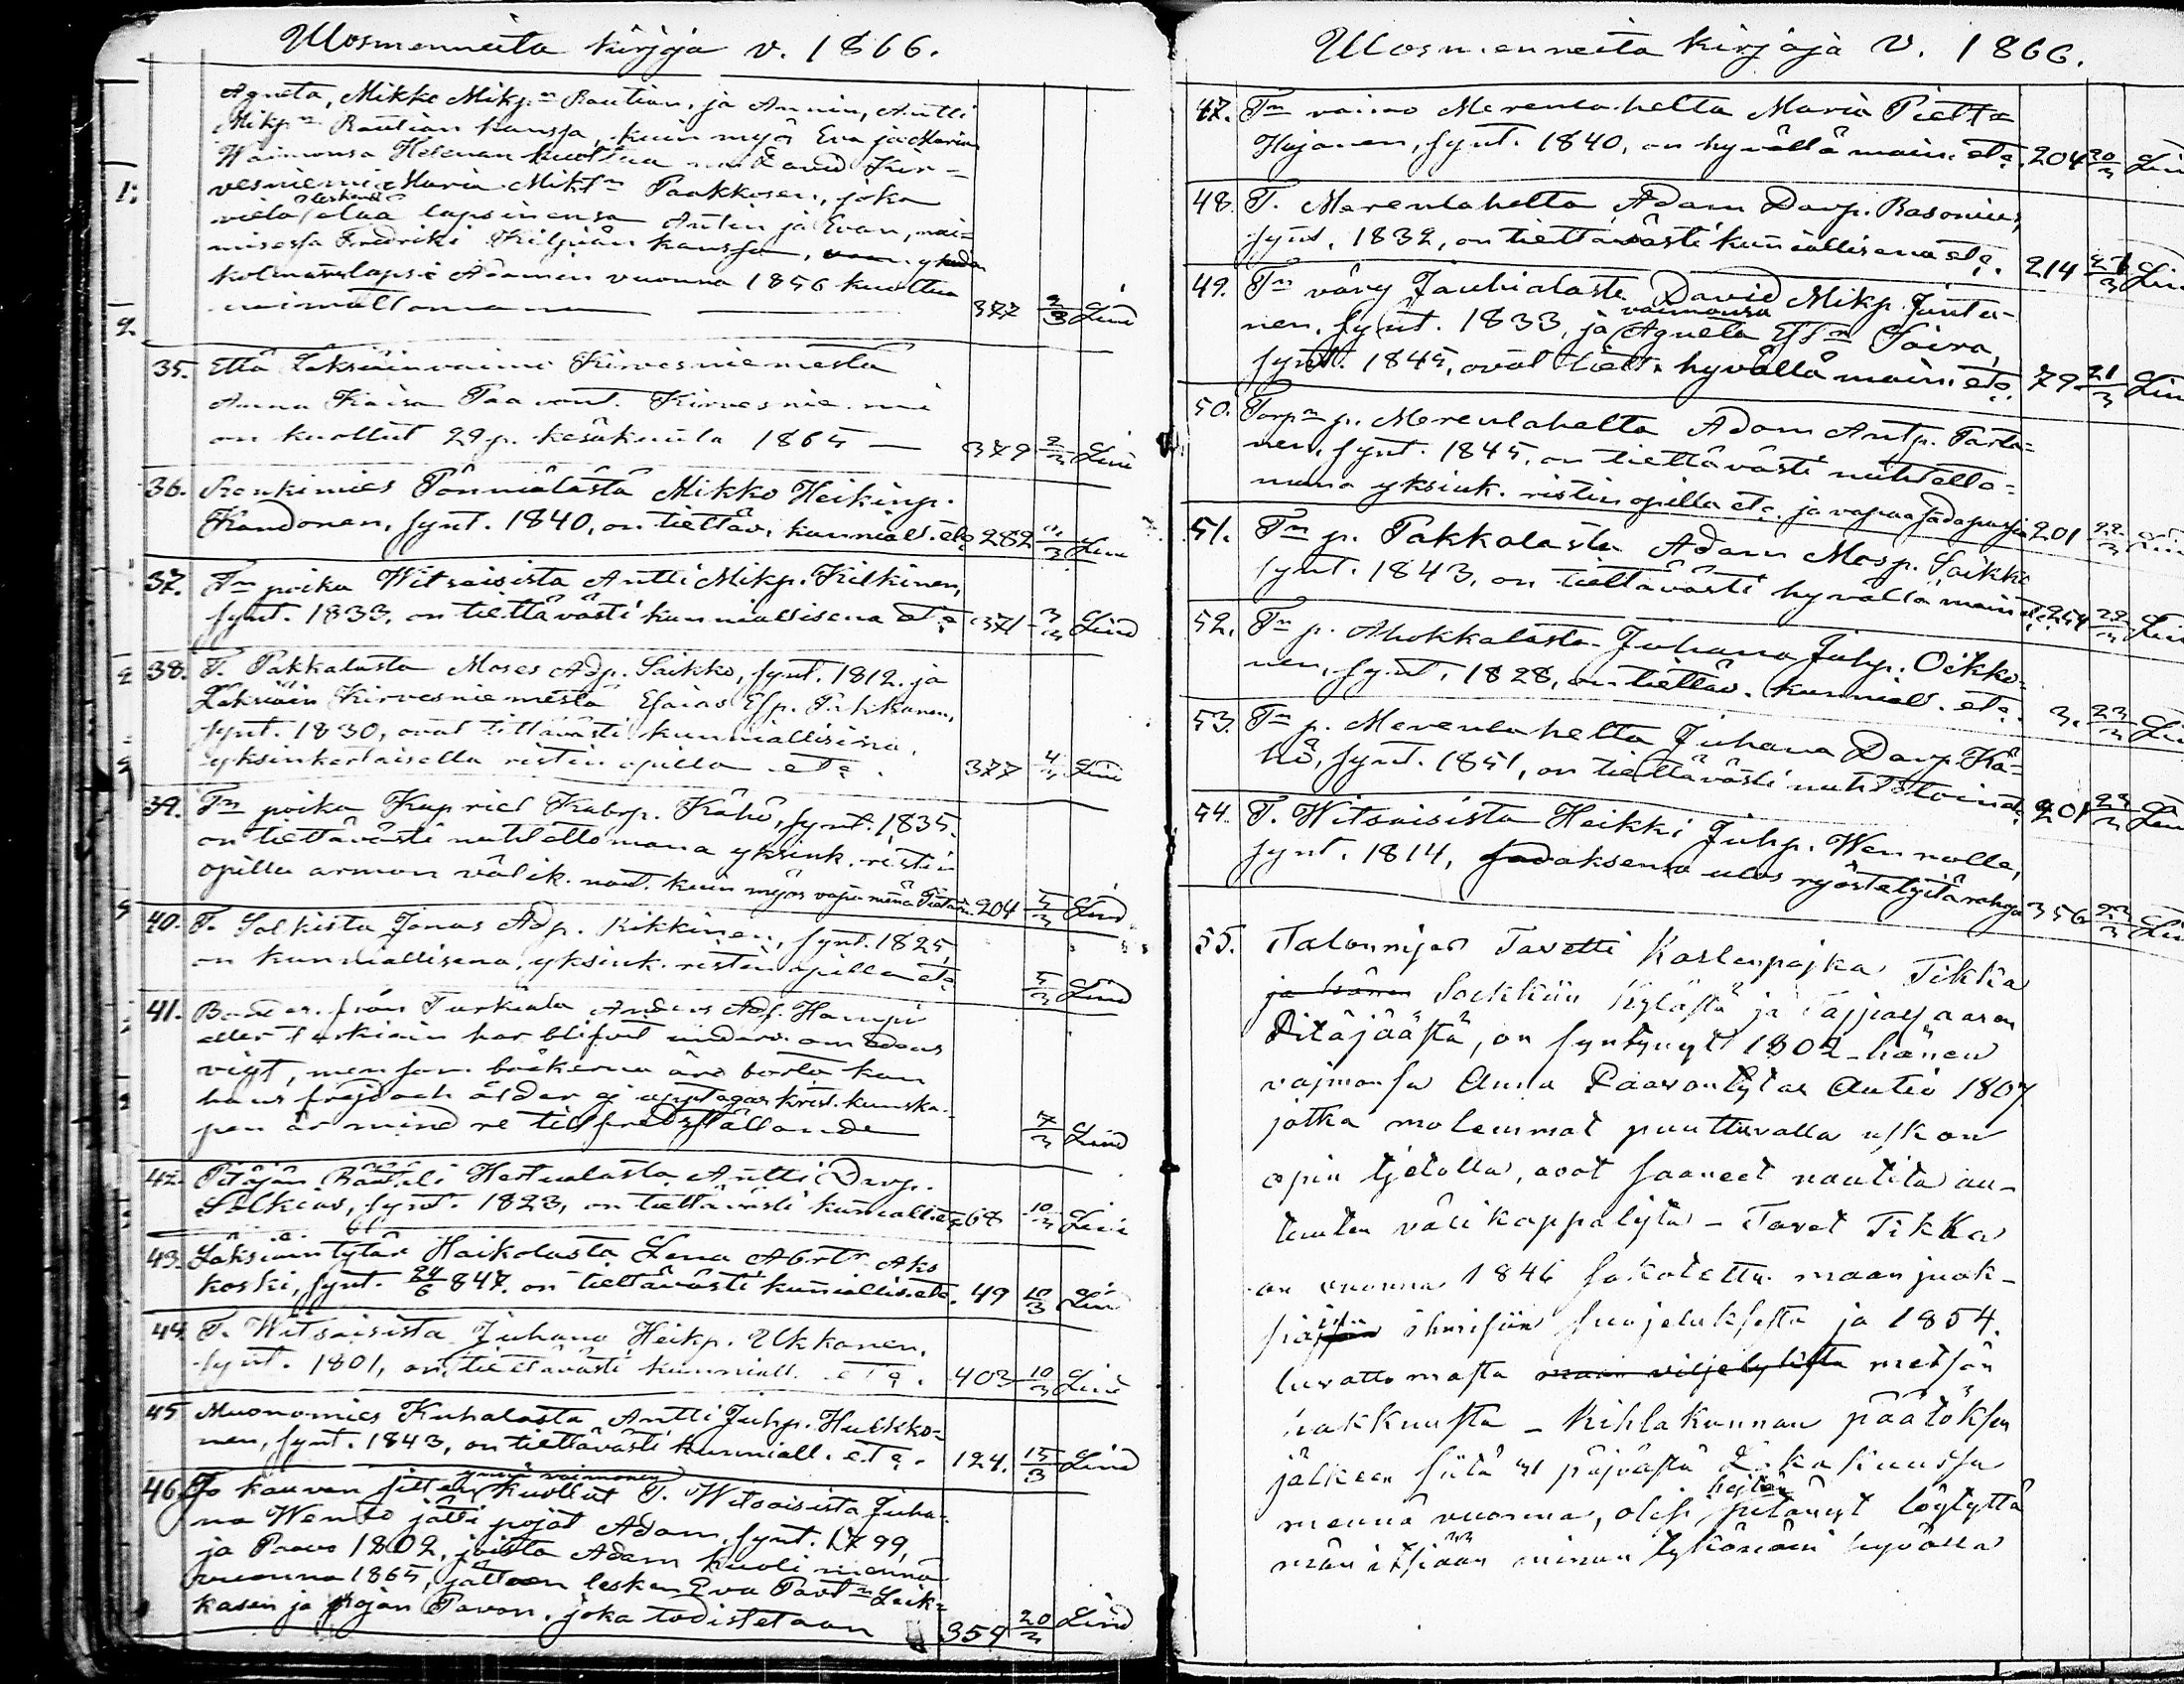 Ulosmenneitä kirjoja v. 1866.
Agneta, Mikko Mikp:n Rautian, ja Annin, Antti
Mikp:n Rautian kanssa, kuin myös Eva ja Maria
Waimonsa Helenan kuoltua Kir=
vesniemi Maria Mikt:n Paakkosen, joka
vielä elää lapsinensa Antin ja Evan, nai=
misessa Fredriki Kiljusen kanssa,
kolmas lapsi Adamin vuonna 1856 kuoltua
nimittömänä 377 2/3 Lind
35. Että Läksiäinvaimo Kirvesniemestä
Anna Kaisa Paavont. Kirvesniemi
on kuollut 29 p. kesäkuuta 1865 — 379 2/3 Lind
36. Renkimies Pönniälästä Mikko Heikinp.
Kandonen, synt. 1840, on tiettäv. kunniall. etc 282 2/3 Lind
37. T:n poika Witsaisista Antti Mikp. Kilkinen,
synt. 1833, on tiettävästi kunniallisena etc 371 3/3 Lind
38. T. Pakkalasta Moses Adp. Saikko, synt. 1812. ja
Läksiäin Kirvesniemestä Esaias Esp. Pakkanen,
synt. 1830, ovat tiettävästi kunniallisina,
yksinkertaisella ristin opilla etc. 377 4/3 Lind
39. T:n poika Kapriel Kabrp. Kähö, synt. 1835.
on tiettävästi nuhtettomana yksink. ristin
opilla armon välik. naut. kuin myös 204 5/3 Lind
40. T. Solkista Jonas Adp. Kikkinen, synt. 1825,
on kunniallisena, yksink. ristin opilla etc 5/3 Lind
41. från Turkiala Anders Adf. Hampi
eller Turkiain har blifvit undervi om dess
vigt, men som böckerna äro borta kan
hans frejd och ålder ej upptagas krist. kunska-
pen är mindre tillfredsställande 7/3 Lind
42. Pitäjän Räätäli Hertualasta Antti Davp.
Solkias, synt. 1823, on tiettävästi kunniall. etc 68 10/3 Lind
43. Läksiäin tytär Haikolasta Lena Abrt:r Aho
koski, synt. 24/6 847. on tiettävästi kunniallis. etc. 49 10/3 Lind
44. T. Witsaisista Juhana Heikp. Ukkonen,
synt. 1801, on tiettävästi kunniall. etc. 403 10/3 Lind
45 Muonomies Kuhalasta Antti Juhp. Hulkko=
nen, synt. 1843, on tiettävästi kunniall. etc. 124. 15/3 Lind
46. Jo kauvan sitten ynnä vaimonen kuollut T. Witsaisista Juha-
na Wento jätti pojat Adam, synt. 1799,
ja Paavo 1802, joista Adam kuoli mennä
vuonna 1865, jättäen lesken Eva Pavt:n Leik=
kasen ja pojan Pavon, joka todistetaan 359 20/3 Lind
Ulosmenneitä kirjoja v. 1866.
47. T:n vaimo Merenlahelta Maria Piett:r
Hajanen, synt. 1840, on hyvällä main. etc. 204 20/3
48. T. Merenlahelta Adam Davp. Rasonius,
synt. 1832, on tiettävästi kunniallisena etc. 214 21/3
49. T:n vävy Jauhialasta David Mikp. Junta-
nen, synt. 1833, ja vaimonsa Agneta Esst:r Saira,
synt. 1845, ovat tiett. hyvällä main. etc. 79 21/3
50. Torp:n p. Merenlahelta Adam Antp. Parta=
nen, synt. 1845, on tiettävästi nuhtetto=
mana yksink. ristin opilla etc. ja vapaa 201 22/3
51. T:n p. Pakkalasta Adam Mosp. Saikko
synt. 1843, on tiettävästi hyvällä main. etc. 254 22/3
52. T:n p. Ahokkalasta Juhana Juhp. Oikko=
nen, synt. 1828, on tiettäv. kunniall. etc. 3. 23/3
53. T:n p. Merenlahelta Juhana Davp. Kä=
hö, synt. 1851, on tiettävästi nuhtetoin etc. 201 23/3
54. T. Witsaisista Heikki Juhp. Wennolle,
synt. 1814, saadaksensa ulos ryöstetyitä rahoja 356 23/3
55. Talonmijes Tavetti Karlenpojka Tikka
ja hänen Sockkiin kylästä ja Taipalsaaren
Pitäjäästä, on syntynyt 1802 - hänen
vajmonsa Anna Paavontytar Autio 1807
jotka molemmat puuttuvalla uskon
opin tjetolla, ovat saaneet nautita au-
tuuten välikappalejta - Tavet Tikka
on vuonna 1846 sakotettu maanjuok-
siain ihmisiin suojeluksesta ja 1854.
luvattomasta maan viljelyksestä metsän
hakkuusta - Kihlakunnan päätöksen
jälkeen siitä 31 päjvästä Lokakuussa
mennä vuonna, olisi hejtän pitänyt löytyttä
män itsiään minun tykönäin hyvällä